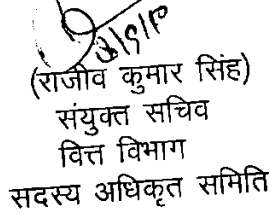 (राजीव कुमार सिंह)
संयुक्त सचिव
वित्त विभाग
सदस्य अधिकृत समिति